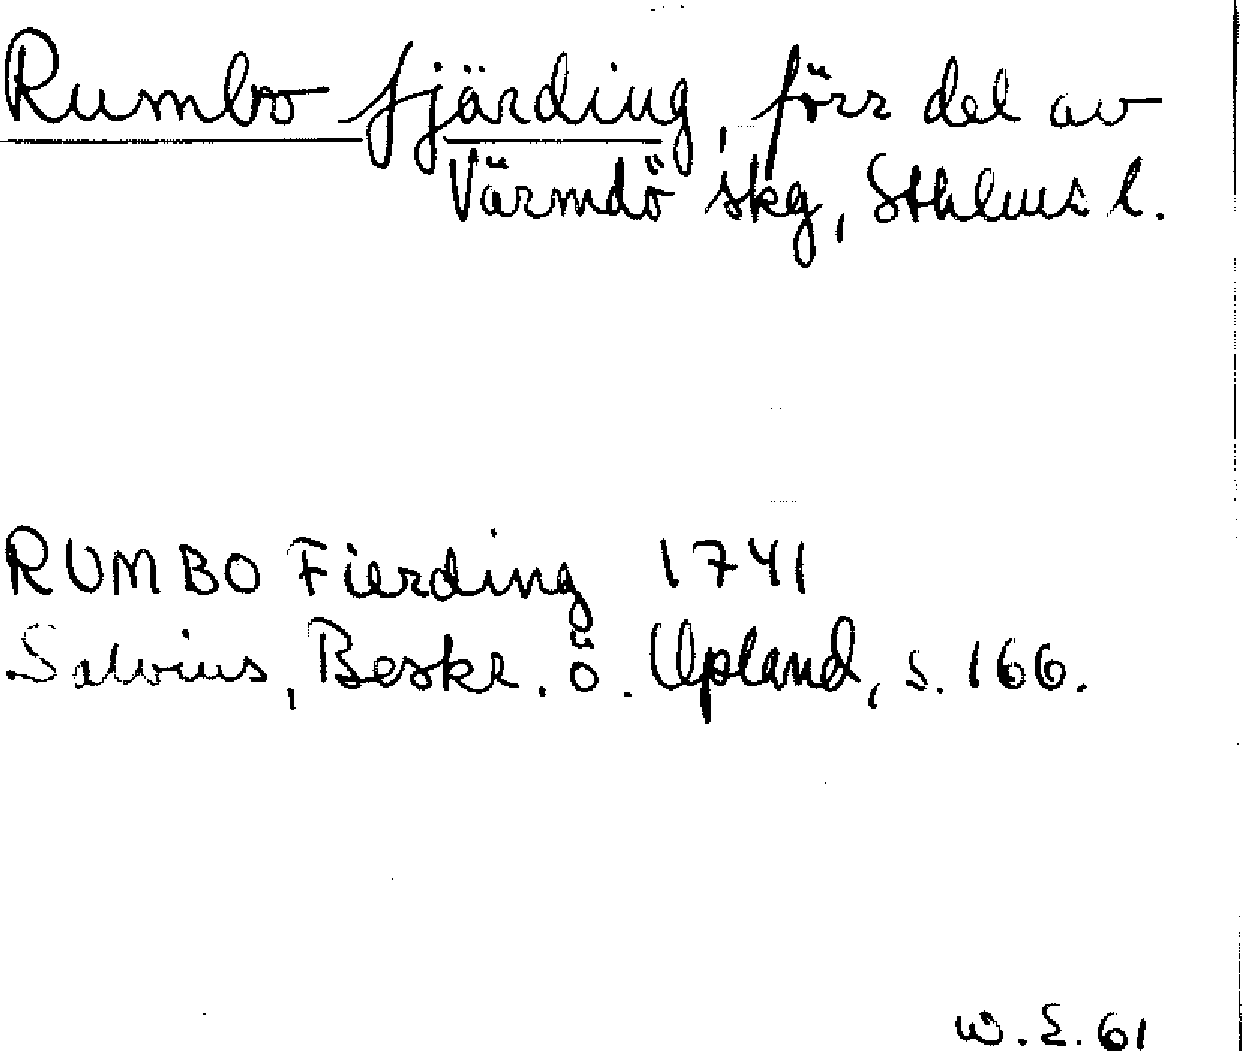 Rumbo fjärding, förr del av
Värmdö skg, Sthlms l.
RUMBO Fierding 1741
Salvius, Beskr. ö. Upland, s. 166.
W. E. 61